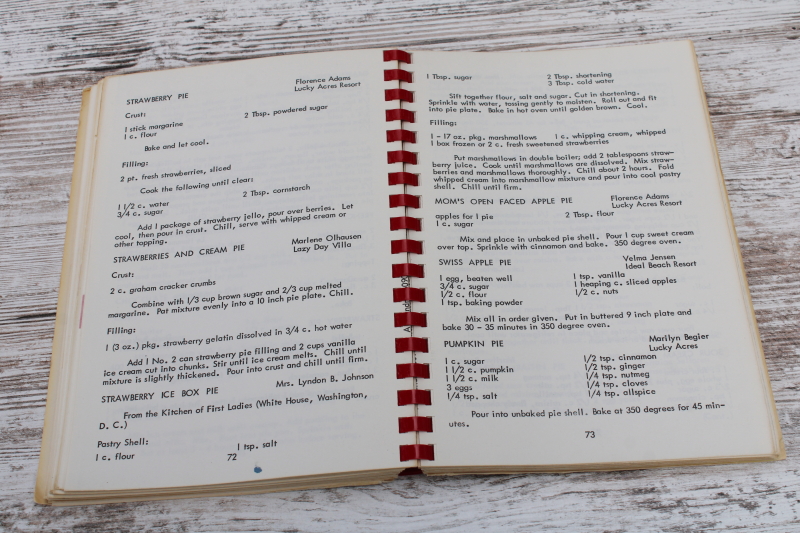 Florence Adams
STRAWBERRY PIE Lucky Acres Resort
Crust:
1 stick margarine 2 Tbsp. powdered sugar
1 c. flour
Bake and let cool.
Filling:
2 pt. fresh strawberries, sliced
Cook the following until clear:
1 1/2 c. water 2 Tbsp. cornstarch
3/4 c. sugar
Add 1 package of strawberry jello, pour over berries. Let
cool, then pour in crust. Chill, serve with whipped cream or
other topping.
Marlene Olhausen
STRAWBERRIES AND CREAM PIE Lazy Day Villa
Crust:
2 c. graham cracker crumbs
Combine with 1/3 cup brown sugar and 2/3 cup melted
margarine. Pat mixture evenly into a 10 inch pie plate. Chill.
Filling:
1 (3 oz.) pkg. strawberry gelatin dissolved in 3/4 c. hot water
Add 1 No. 2 can strawberry pie filling and 2 cups vanilla
ice cream cut into chunks. Stir until ice cream melts. Chill until
mixture is slightly thickened. Pour into crust and chill until firm.
STRAWBERRY ICE BOX PIE Mrs. Lyndon B. Johnson
From the Kitchen of First Ladies (White House, Washington,
D. C.)
Pastry Shell:
1 c. flour 1 tsp. salt
72
1 Tbsp. sugar 2 Tbsp. shortening
3 Tbsp. cold water
Sift together flour, salt and sugar. Cut in shortening.
Sprinkle with water, tossing gently to moisten. Roll out and fit
into pie plate. Bake in hot oven until golden brown. Cool.
Filling:
1 - 17 oz. pkg. marshmallows 1 c. whipping cream, whipped
1 box frozen or 2 c. fresh sweetened strawberries
Put marshmallows in double boiler; add 2 tablespoons straw-
berry juice. Cook until marshmallows are dissolved. Mix straw-
berries and marshmallows thoroughly. Chill about 2 hours. Fold
whipped cream into marshmallow mixture and pour into cool pastry
shell. Chill until firm.
MOM'S OPEN FACED APPLE PIE Florence Adams
Lucky Acres Resort
apples for 1 pie 2 Tbsp. flour
1 c. sugar
Mix and place in unbaked pie shell. Pour 1 cup sweet cream
over top. Sprinkle with cinnamon and bake. 350 degree oven.
SWISS APPLE PIE Velma Jensen
Ideal Beach Resort
1 egg, beaten well 1 tsp. vanilla
3/4 c. sugar 1 heaping c. sliced apples
1/2 c. flour 1/2 c. nuts
1 tsp. baking powder
Mix all in order given. Put in buttered 9 inch plate and
bake 30 - 35 minutes in 350 degree oven.
PUMPKIN PIE Marilyn Begier
Lucky Acres
1 c. sugar 1/2 tsp. cinnamon
1 1/2 c. pumpkin 1/2 tsp. ginger
1 1/2 c. milk 1/4 tsp. nutmeg
3 eggs 1/4 tsp. cloves
1/4 tsp. salt 1/4 tsp. allspice
Pour into unbaked pie shell. Bake at 350 degrees for 45 min-
utes.
73